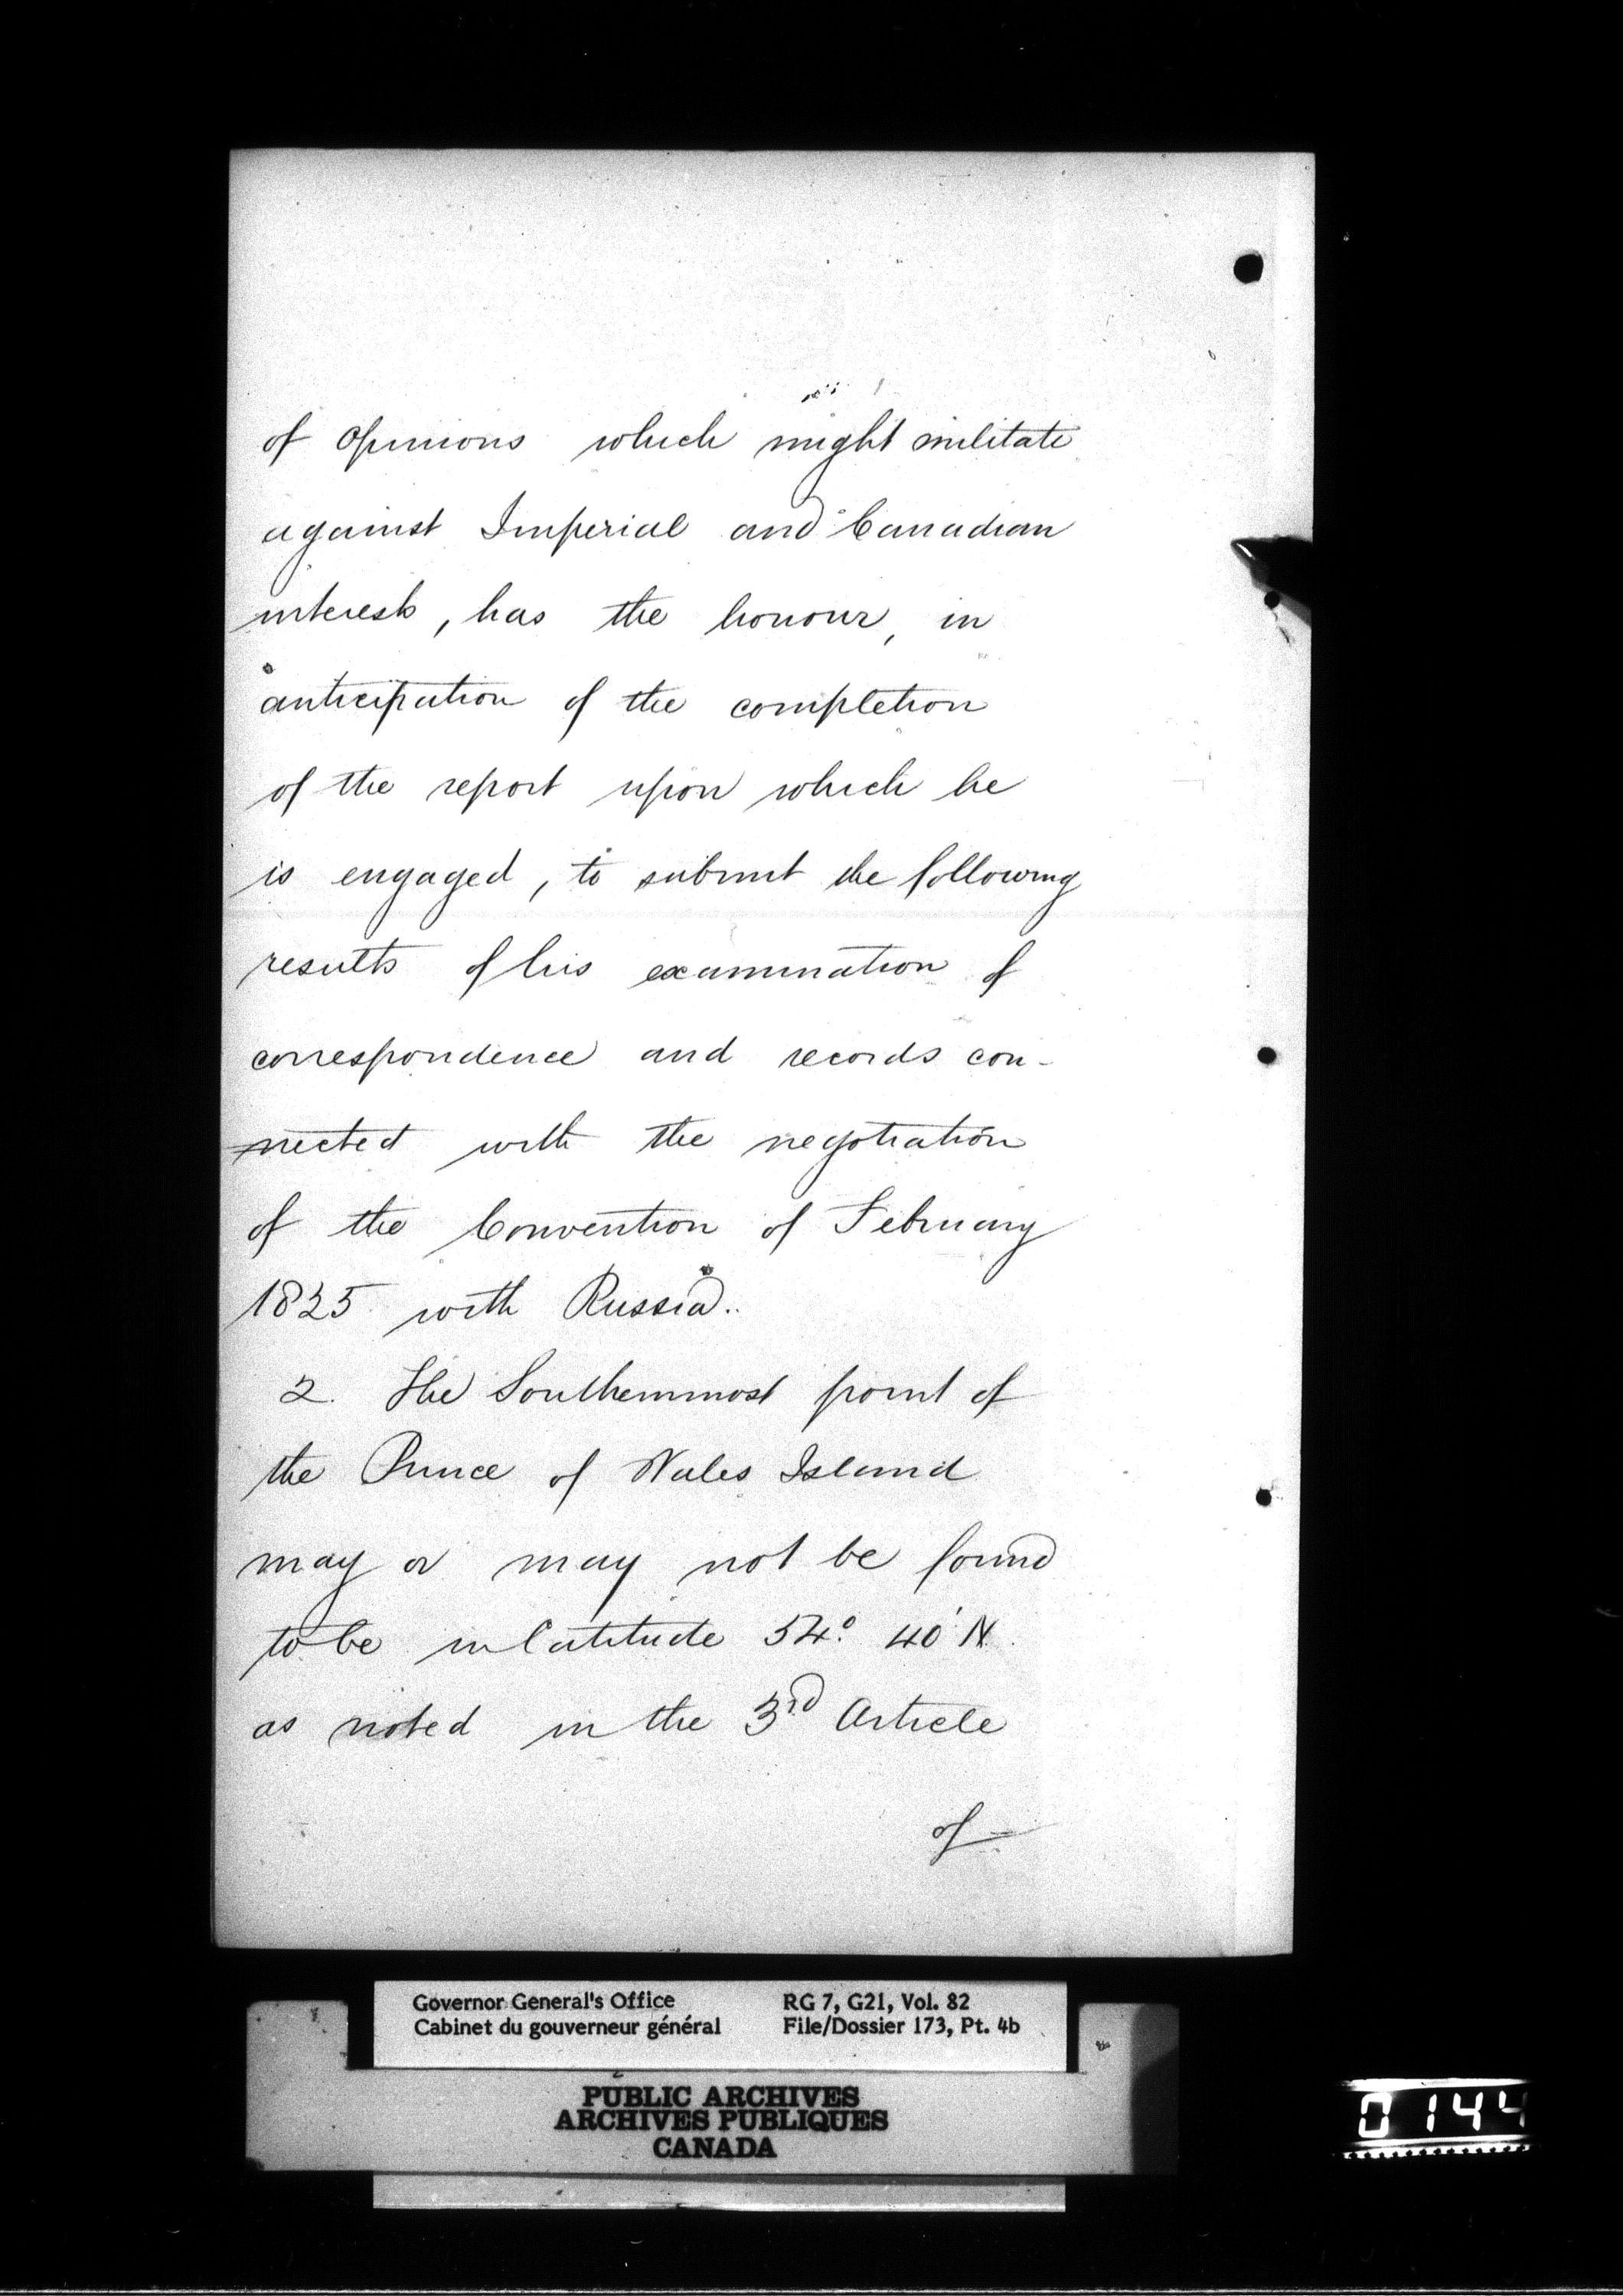 of Opinions which might militate
against Imperial and Canadian
interests, has the honour, in
anticipation of the completion
of the report upon which he
is engaged, to submit the following
results of his examination of
correspondence and records con-
nected with the negotiation
of the Convention of February
1825 with Russia.
2. The Southernmost point of
the Prince of Wales Island
may or may not be found
to be in latitude 54° 40' N.
as noted in the 3rd Article
of
Governor General's Office
Cabinet du gouverneur général
RG 7, G21, Vol. 82
File/Dossier 173, Pt. 4b
PUBLIC ARCHIVES
ARCHIVES PUBLIQUES
CANADA
0144